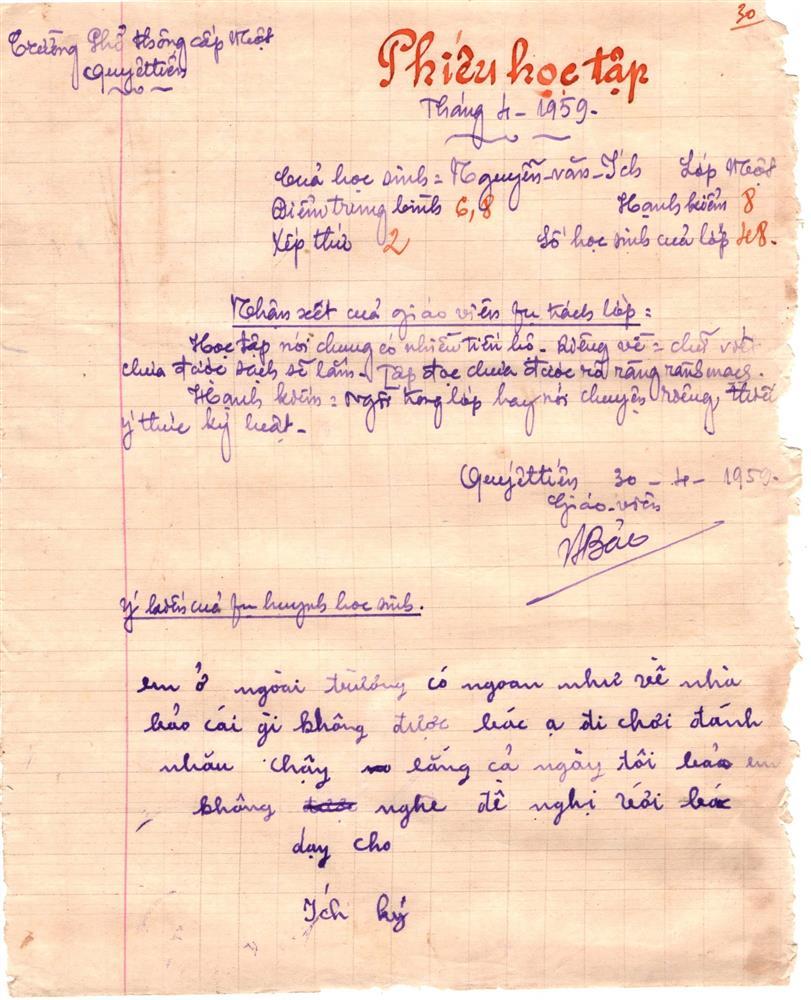 30
Trường Phổ thông cấp Một
Quyết tiến
Phiếu học tập
Tháng 4 - 1959.
Của học sinh = Nguyễn-văn-Ích Lớp Một
Điểm trung bình 6,8 Hạnh kiểm 8
Xếp thứ 2 Số học sinh của lớp 48.
Nhận xét của giáo viên fụ trách lớp =
Học tập nói chung có nhiều tiến bộ. Riêng về = chữ viết
chưa được sạch sẽ lắm. Tập đọc chưa được rõ ràng rành mạch.
Hạnh kiểm = Ngồi trong lớp hay nói chuyện riêng, thiếu
ý thức kỷ luật.
Quyết tiến 30 - 4 - 1959.
Giáo-viên
Bảo
Ý kiến của fụ huynh học sinh.
em ở ngoài trường có ngoan như về nhà
bảo cái gì không được bác ạ đi chơi đánh
nhău chạy lăng cả ngày tôi bảo em
không nghe đề nghị với bác
dạy cho
Ích ký